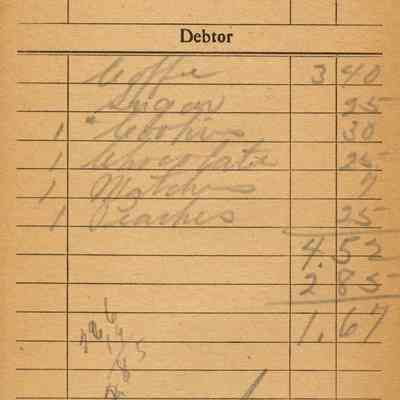 Debtor
Coffe 3 40
Sugar 25
1 " Cookies 30
1 Chocolate 25
1 Matches 7
1 Peaches 25
4.52
2 85
1.67